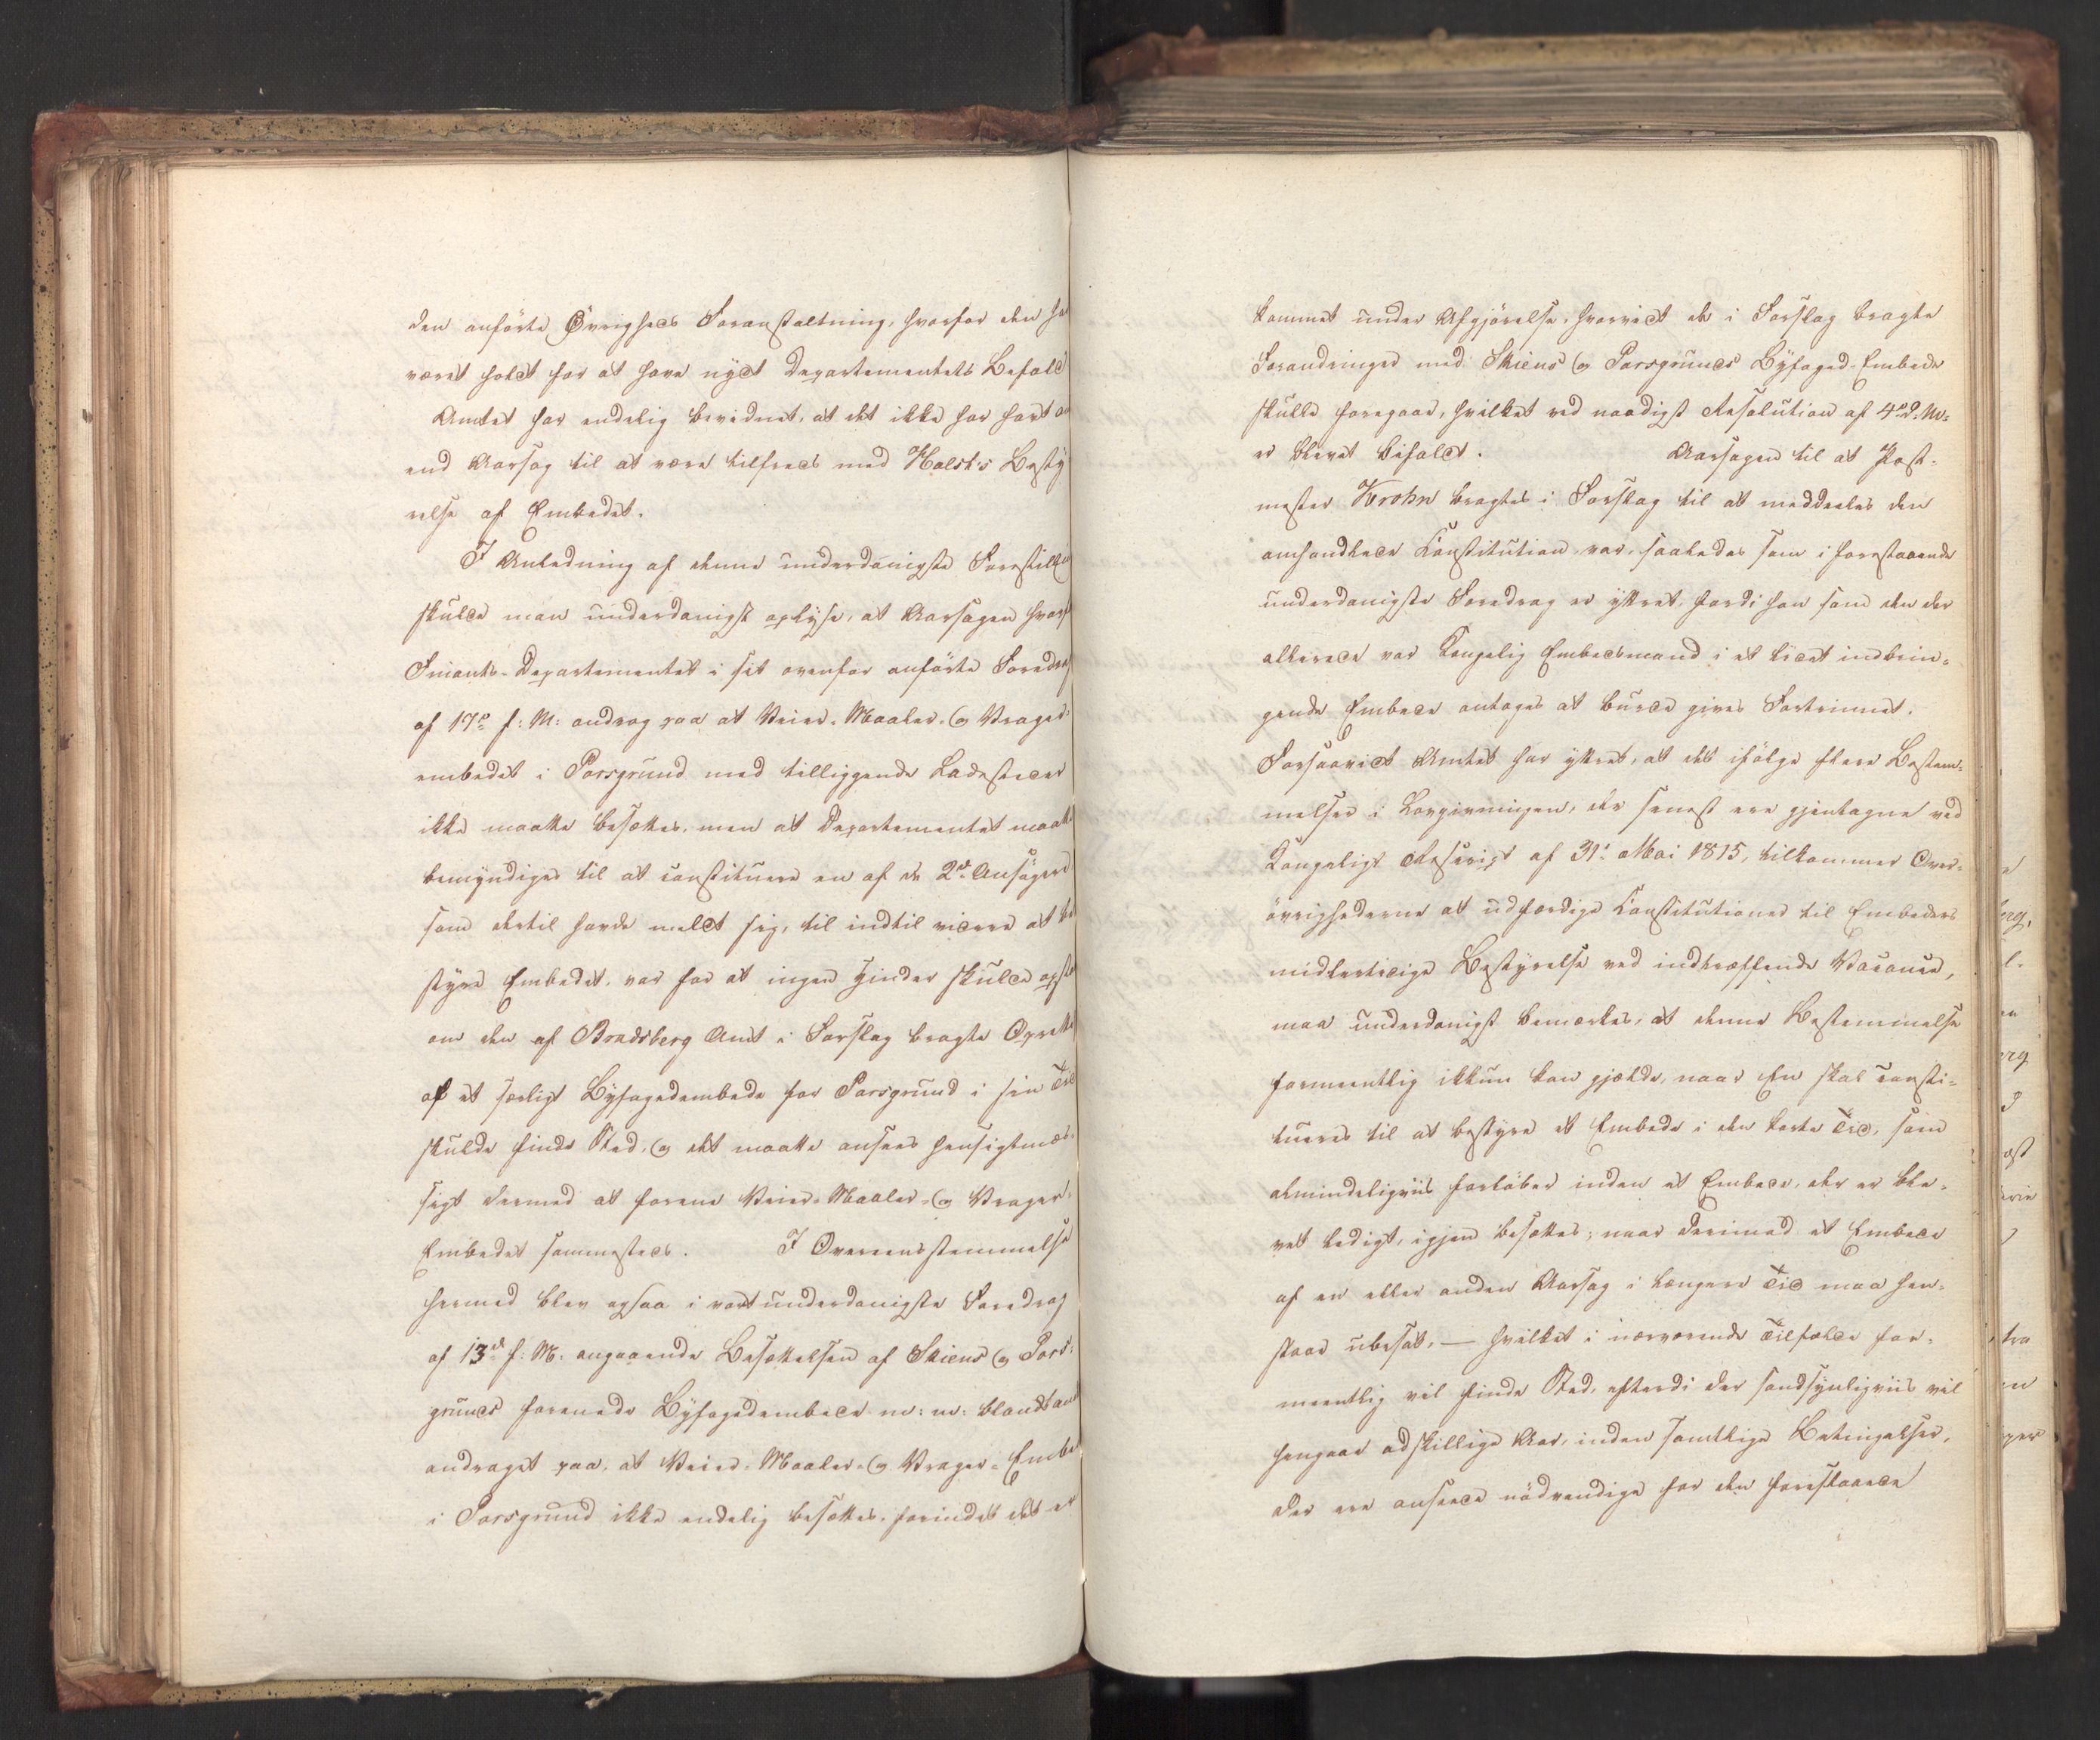 den anførte Øvrigheds Foranstaltning, hvorfor den ha
været holdt for at have nydt Departementets Befald
Amtet har endelig bevidnet, at det ikke har havt a
end Aarsag til at være tilfreds med Holst's Besty
relse af Embedet.
I Anledning af denne underdanigste Forestill
skulde man underdanigst oplyse, at Aarsagen hvorf
Finants-Departementet i sit ovenfor anførte Foredra
af 17de f: M: androg paa at Veier- Maaler- og Vrager-
embedet i Porsgrund med tilliggende Ladesteder
ikke maatte besættes, men at Departementet maatt
bemyndiges til at constituere en af de 2de Ansøgere
som dertil havde meldt sig, til indtil videre at be
styre Embedet, var for at ingen Hinder skulde opst
om den af Bradsberg Amt i Forslag bragte Oprett
af et særligt Byfogedembede for Porsgrund i sin Tid
skulde finde Sted, og det maatte ansees hensigtmæs-
sigt dermed at forene Veier- Maaler- og Vrager-
Embedet sammesteds. I Overeensstemmelse
hermed blev ogsaa i vort underdanigste Foredrag
af 13de f: M: angaaende Besættelsen af Skiens og Pors-
grunds forenede Byfogedembede m: m: blandt an
andraget paa, at Veier- Maaler- og Vrager- Embe
i Porsgrund ikke endelig besættes, forindet det er
kommet under Afgjørelse, hvorvidt de i Forslag bragte
Forandringer med Skiens og Porsgrunds Byfoged-Embede
skulle foregaae, hvilket ved naadigst Resolution af 4de d: M:
er blevet bifaldt. Aarsagen til at Post-
mester Krohn bragtes i Forslag til at meddeeles den
omhandlede Constitution var, saaledes som i forestaaende
underdanigste Foredrag er yttret, fordi han som den der
allerede var Kongelig Embedsmand i et lidet indbrin-
gende Embede antages at burde gives Fortrinnet.
Forsaavidt Amtet har yttret, at det ifølge flere Bestem-
melser i Lovgivningen, der senest ere gjentagne ved
Kongeligt Rescript af 31te Mai 1815, tilkommer Over-
øvrighederne at udfærdige Constitutioner til Embeders
midlertidige Bestyrelse ved indtræffende Vacance,
maa underdanigst bemærkes, at denne Bestemmelse
formeentlig ikkun kan gjælde, naar En skal consti-
tueres til at bestyre et Embede i den korte Tid, som
almindeligviis forløber inden et Embede, der er ble-
vet ledigt, igjen besættes; naar derimod et Embede
af en eller anden Aarsag i længere Tid maa hen-
staae ubesat, — hvilket i nærværende Tilfælde for-
meentlig vil finde Sted, efterdi der sandsynligviis vil
hengaae adskillige Aar, inden samtlige Betingelser,
der ere ansaaede nødvendige for den forestaaede